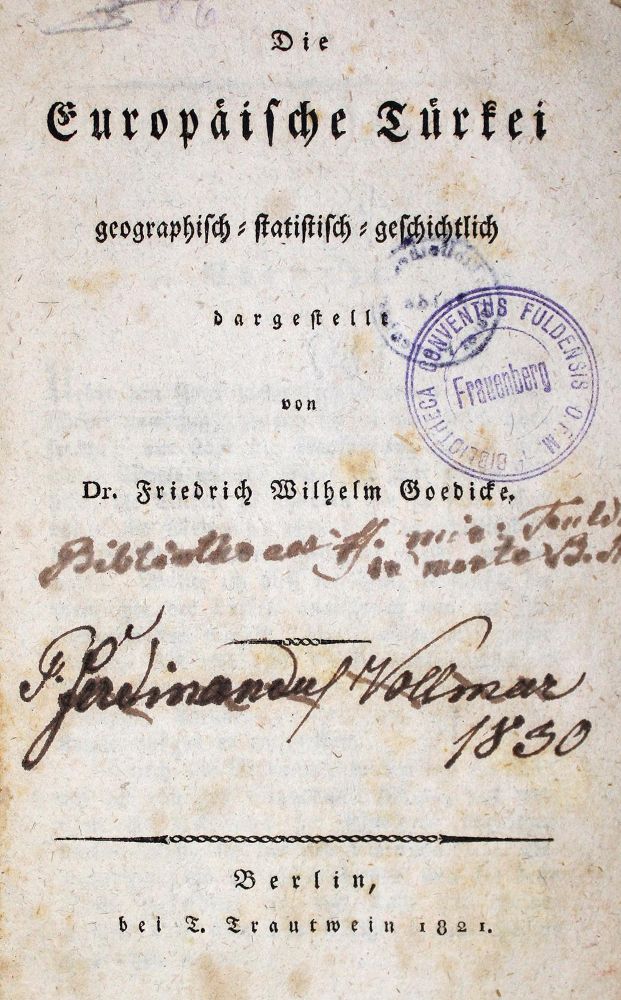 Die
Europäische Türkei
geographisch-statistisch-geschichtlich
dargestellt
von
Dr. Friedrich Wilhelm Goedicke.
BIBLIOTHECA CONVENTUS FULDENSIS O.F.M.
Frauenberg
in monte
P. Ferdinandus Vollmar
1830
Berlin,
bei T. Trautwein 1821.